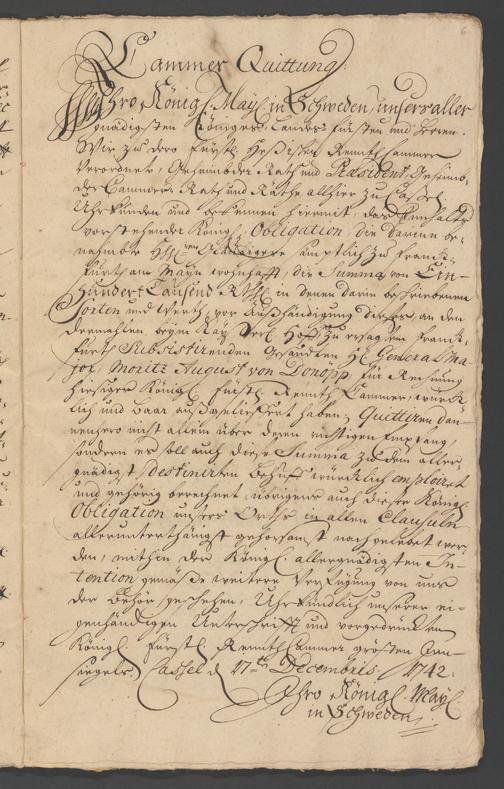 6
Cammer Quittung.
Ihro Königl. May. in Schweden, unsers aller
gnädigsten Königs, Landes Fürsten und Herrn.
Wir zu dero Fürstl. Heßischen Renth Cammer
Verordnete, Geheimbder Rath und Præsident,
der Cammer Rath und Räthe allhier zu Cassel
Uhrkunden und bekennen hiermit, daß Innhalts
vorstehender Königl. Obligation, die darinn be-
nahmbte H. Gläubigere sämptlich zu Franck-
furth am Mayn wohnhafft, die Summa von Ein-
Hundert Tausend Rthl. in denen darin beschriebenen
Sorten und Werth, vor Außhändigung dieses, an den
dermahlen beym Kay. Hoff, zu ersagtem Franck-
furth Subsistirenden Gesandten H. General Ma-
jor, Moritz August von Donopp, für Rechnung
hiesiger Königl. Fürstl. Renth Cammer, würck-
lich und baar außgeliefert haben; Quittiren dan-
nenhero nicht allein über deren richtigen Empfang,
sondern es soll auch diese Summa zu dem aller-
gnädigst destinirten Behuff würcklich emploirt
und gehörig berechnet, übrigens auch dieser Königl.
Obligation unsers Orths in allen Clausuln
allerunterthänigst gehorsamst nachgelebet wer-
den, mithin der Königl. allergnädigsten In-
tention gemäße weitere Verfügung von uns
der Behör geschehen, Uhrkundlich unserer ei-
genhändigen Unterschrifft und vorgedrücktem
Königl. Fürstl. Renth Cammer größern Inn-
siegels. Cassel d. 17ten Decembris. 1742.
Ihro Königl. May.
in Schweden